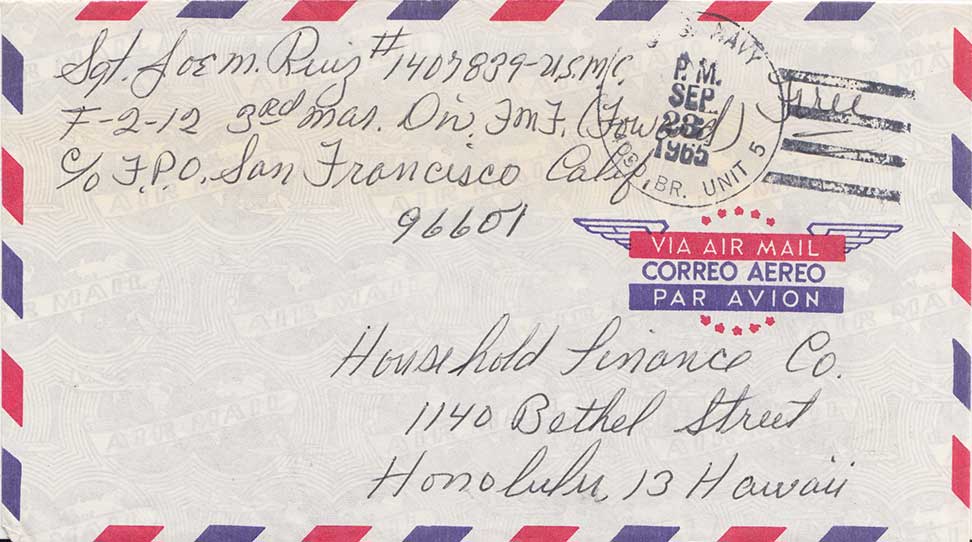 Sgt. Joe M. Ruiz # 1407839-U.S.M.C.
F-2-12 3rd Mar. Div. F.M.F. (Foward) Free
c/o F.P.O. San Francisco Calif.
96601
U.S. NAVY
P.M.
SEP
23
1965
BR. UNIT 5
VIA AIR MAIL
CORREO AEREO
PAR AVION
Household Finance Co.
1140 Bethel Street
Honolulu, 13 Hawaii
AIR MAIL
AIR MAIL
AIR MAIL
AIR MAIL